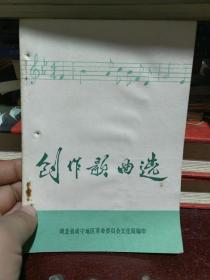 创作歌曲选
湖北省咸宁地区革命委员会文化局编印